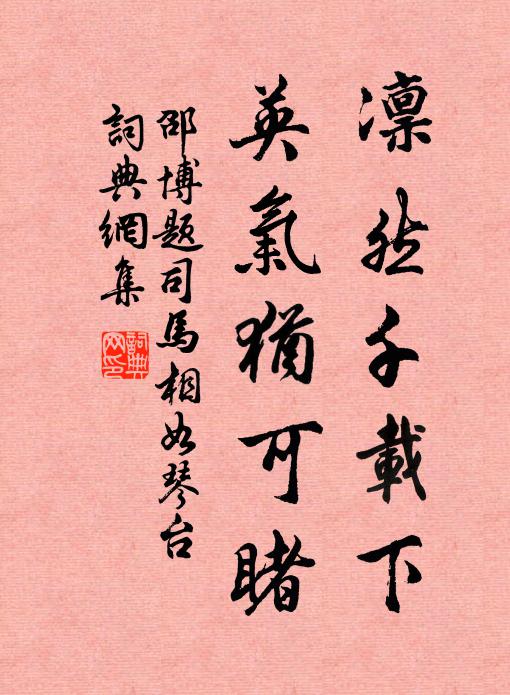 凜然千載下
英氣猶可睹
邵博題司馬相如琴台
詞典網集
詞典網印